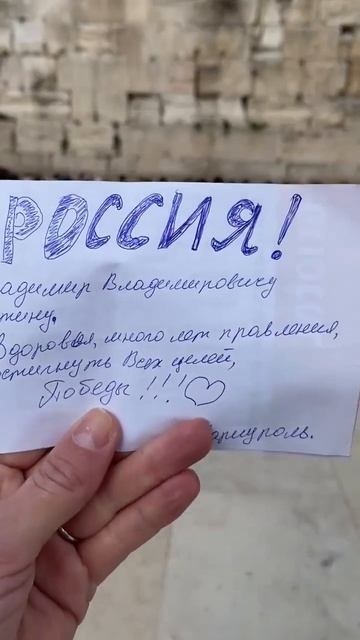 РОССИЯ!
адимир Владимировичу
тину.
Здоровья, много лет правления,
остигнуть Всех целей,
Победы!!!
ариуполь.